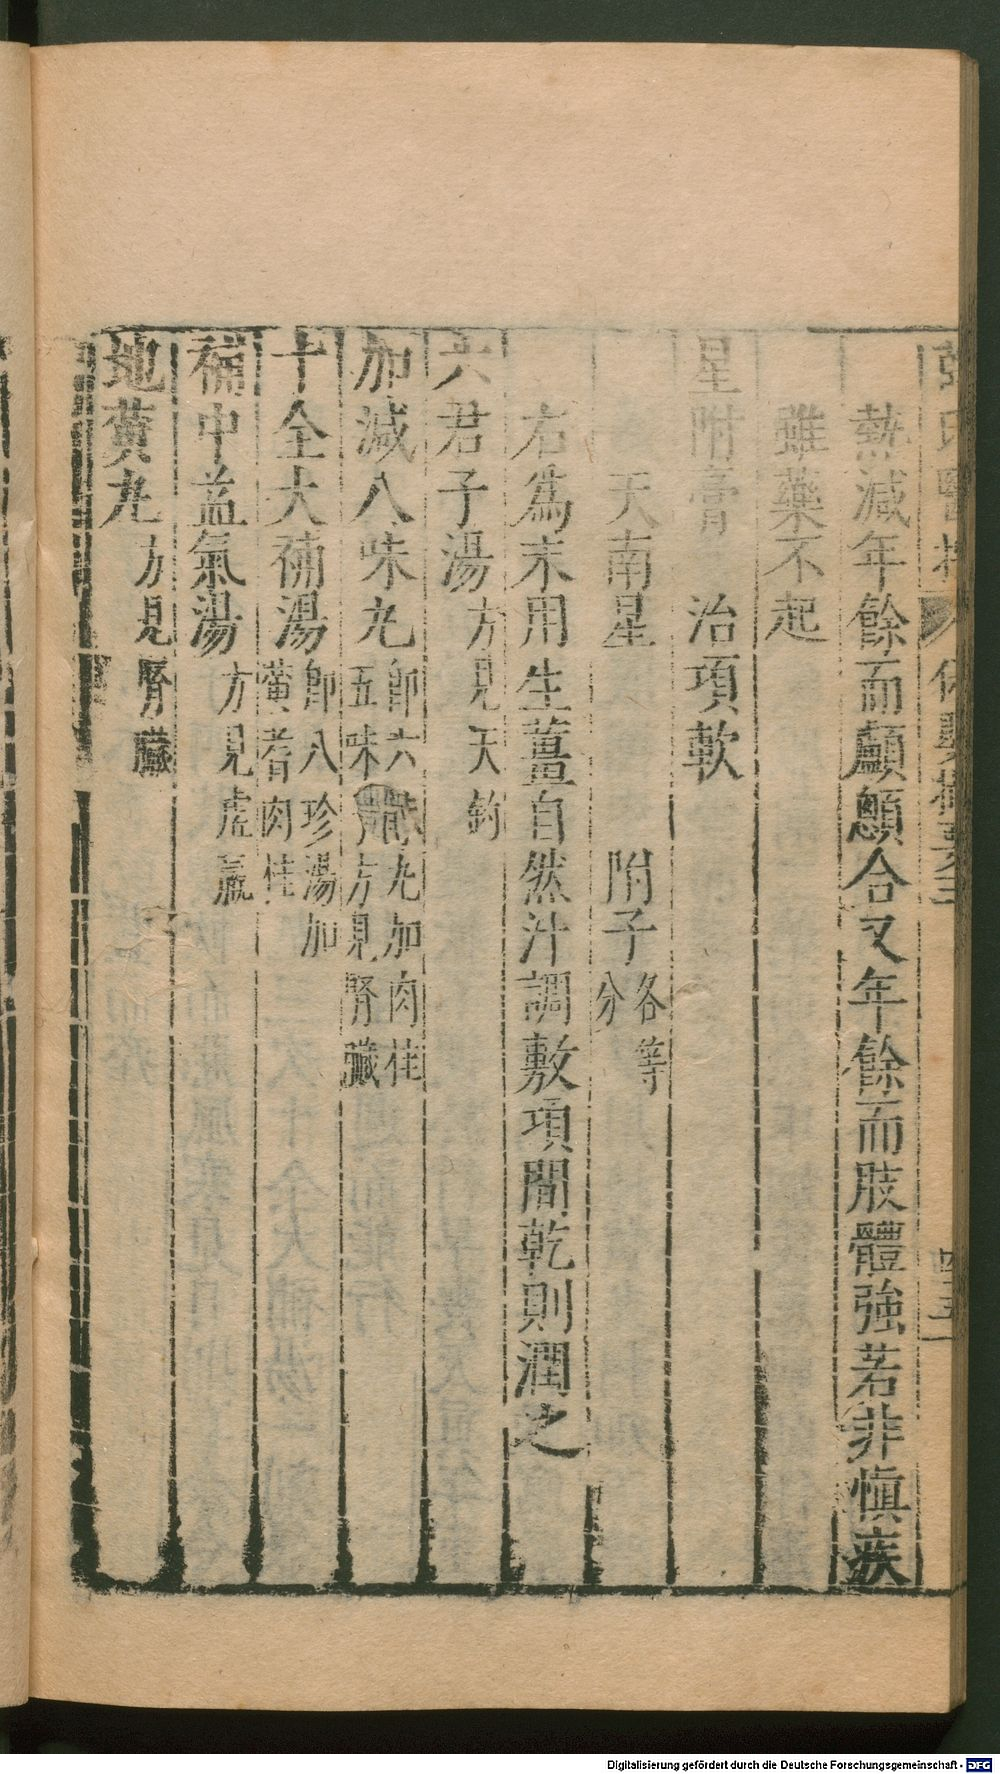 熱減年餘而顱顖合又年餘而肢體強若非慎疾
雖藥不起
星附膏 治項軟
天南星 附子各等分
右爲末用生薑自然汁調敷項間乾則潤之
六君子湯方見天釣
加減八味丸即六味丸加肉桂五味 方見腎臟
十全大補湯即八珍湯加黃耆肉桂
補中益氣湯方見虛羸
地黃丸方見腎臟
Digitalisierung gefördert durch die Deutsche Forschungsgemeinschaft - DFG